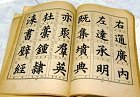 右通廣內
左達承明
既集墳典
亦聚羣英
杜稾鍾隸
漆書壁經